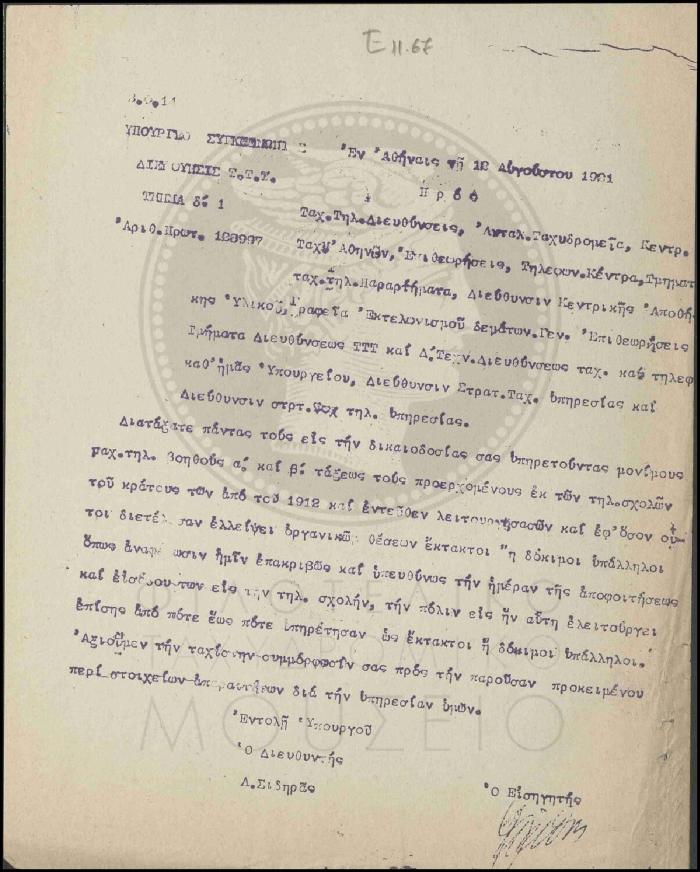 Ε 11.67
ΥΠΟΥΡΓΙΟ ΣΥΓΚΟΙΝΩΝΙ Σ Ἐν Ἀθήναις τῇ 12 Αὐγούστου 1921
ΔΙΕΥΘΥΝΣΙΣ Τ.Τ.Τ. Πρόσ
ΤΜΗΜΑ δ. 1 Ταχ.Τηλ.Διευθύνσεις, Ἀνταλ.Ταχυδρομεῖα, Κεντρ.
Ἀριθ.Πρωτ. 128997 Ταχ. Ἀθηνῶν, Ἐπιθεωρήσεις, Τηλεφων.Κέντρα, Τμηματ
ταχ.τηλ.Παραρτήματα, Διεύθυνσιν Κεντρικῆς Ἀποθή
κης Ὑλικοῦ, Γραφεῖα Ἐκτελωνισμοῦ δεμάτων.Γεν. Ἐπιθεωρήσεις
Τμήματα Διευθύνσεως ΤΤΤ καί Δ.Τεχν.Διευθύνσεως ταχ. καί τηλεφ
καθ'ἡμᾶς Ὑπουργείου, Διεύθυνσιν Στρατ.Ταχ. ὑπηρεσίας καί
Διεύθυνσιν στρτ. τηλ. ὑπηρεσίας.
Διατάξατε πάντας τούς εἰς τήν δικαιοδοσίας σας ὑπηρετοῦντας μονίμους
ταχ.τηλ. βοηθούς α; καί β; τάξεως τούς προερχομένους ἐκ τῶν τηλ.σχολῶν
τοῦ κράτους τῶν ἀπό τοῦ 1912 καί ἐντεῦθεν λειτουργησασῶν καί ἐφ'ὅσον οὗ-
τοι διετέλ σαν ἐλλείψει ὀργανικῶν θέσεων ἔκτακτοι ἤ δόκιμοι ὑπάλληλοι
ὅπως ἀναφ ωσιν ἡμῖν ἐπακριβῶς καί ὑπευθύνως τήν ἡμέραν τῆς ἀποφοιτήσεως
καί εἰσόδου των εἰς τήν τηλ. σχολήν, τήν πόλιν εἰς ἥν αὕτη ἐλειτούργει
ἐπίσης ἀπό πότε ἕως πότε ὑπηρέτησαν ὡς ἔκτακτοι ἤ δόκιμοι ὑπάλληλοι.
Ἀξιοῦμεν τήν ταχίστην συμμόρφωσίν σας πρός τήν παροῦσαν προκειμένου
περί στοιχείων ἀπαραιτήτων διά τήν ὑπηρεσίαν ἡμῶν.
Ἐντολῇ Ὑπουργοῦ
Ὁ Διευθυντής
Λ.Σιδηρᾶς
Ὁ Εἰσηγητής
ΦΙΛΟΤΕΛΙΚΟ
ΤΑΧΥΔΡΟΜΙΚΟ
ΜΟΥΣΕΙΟ